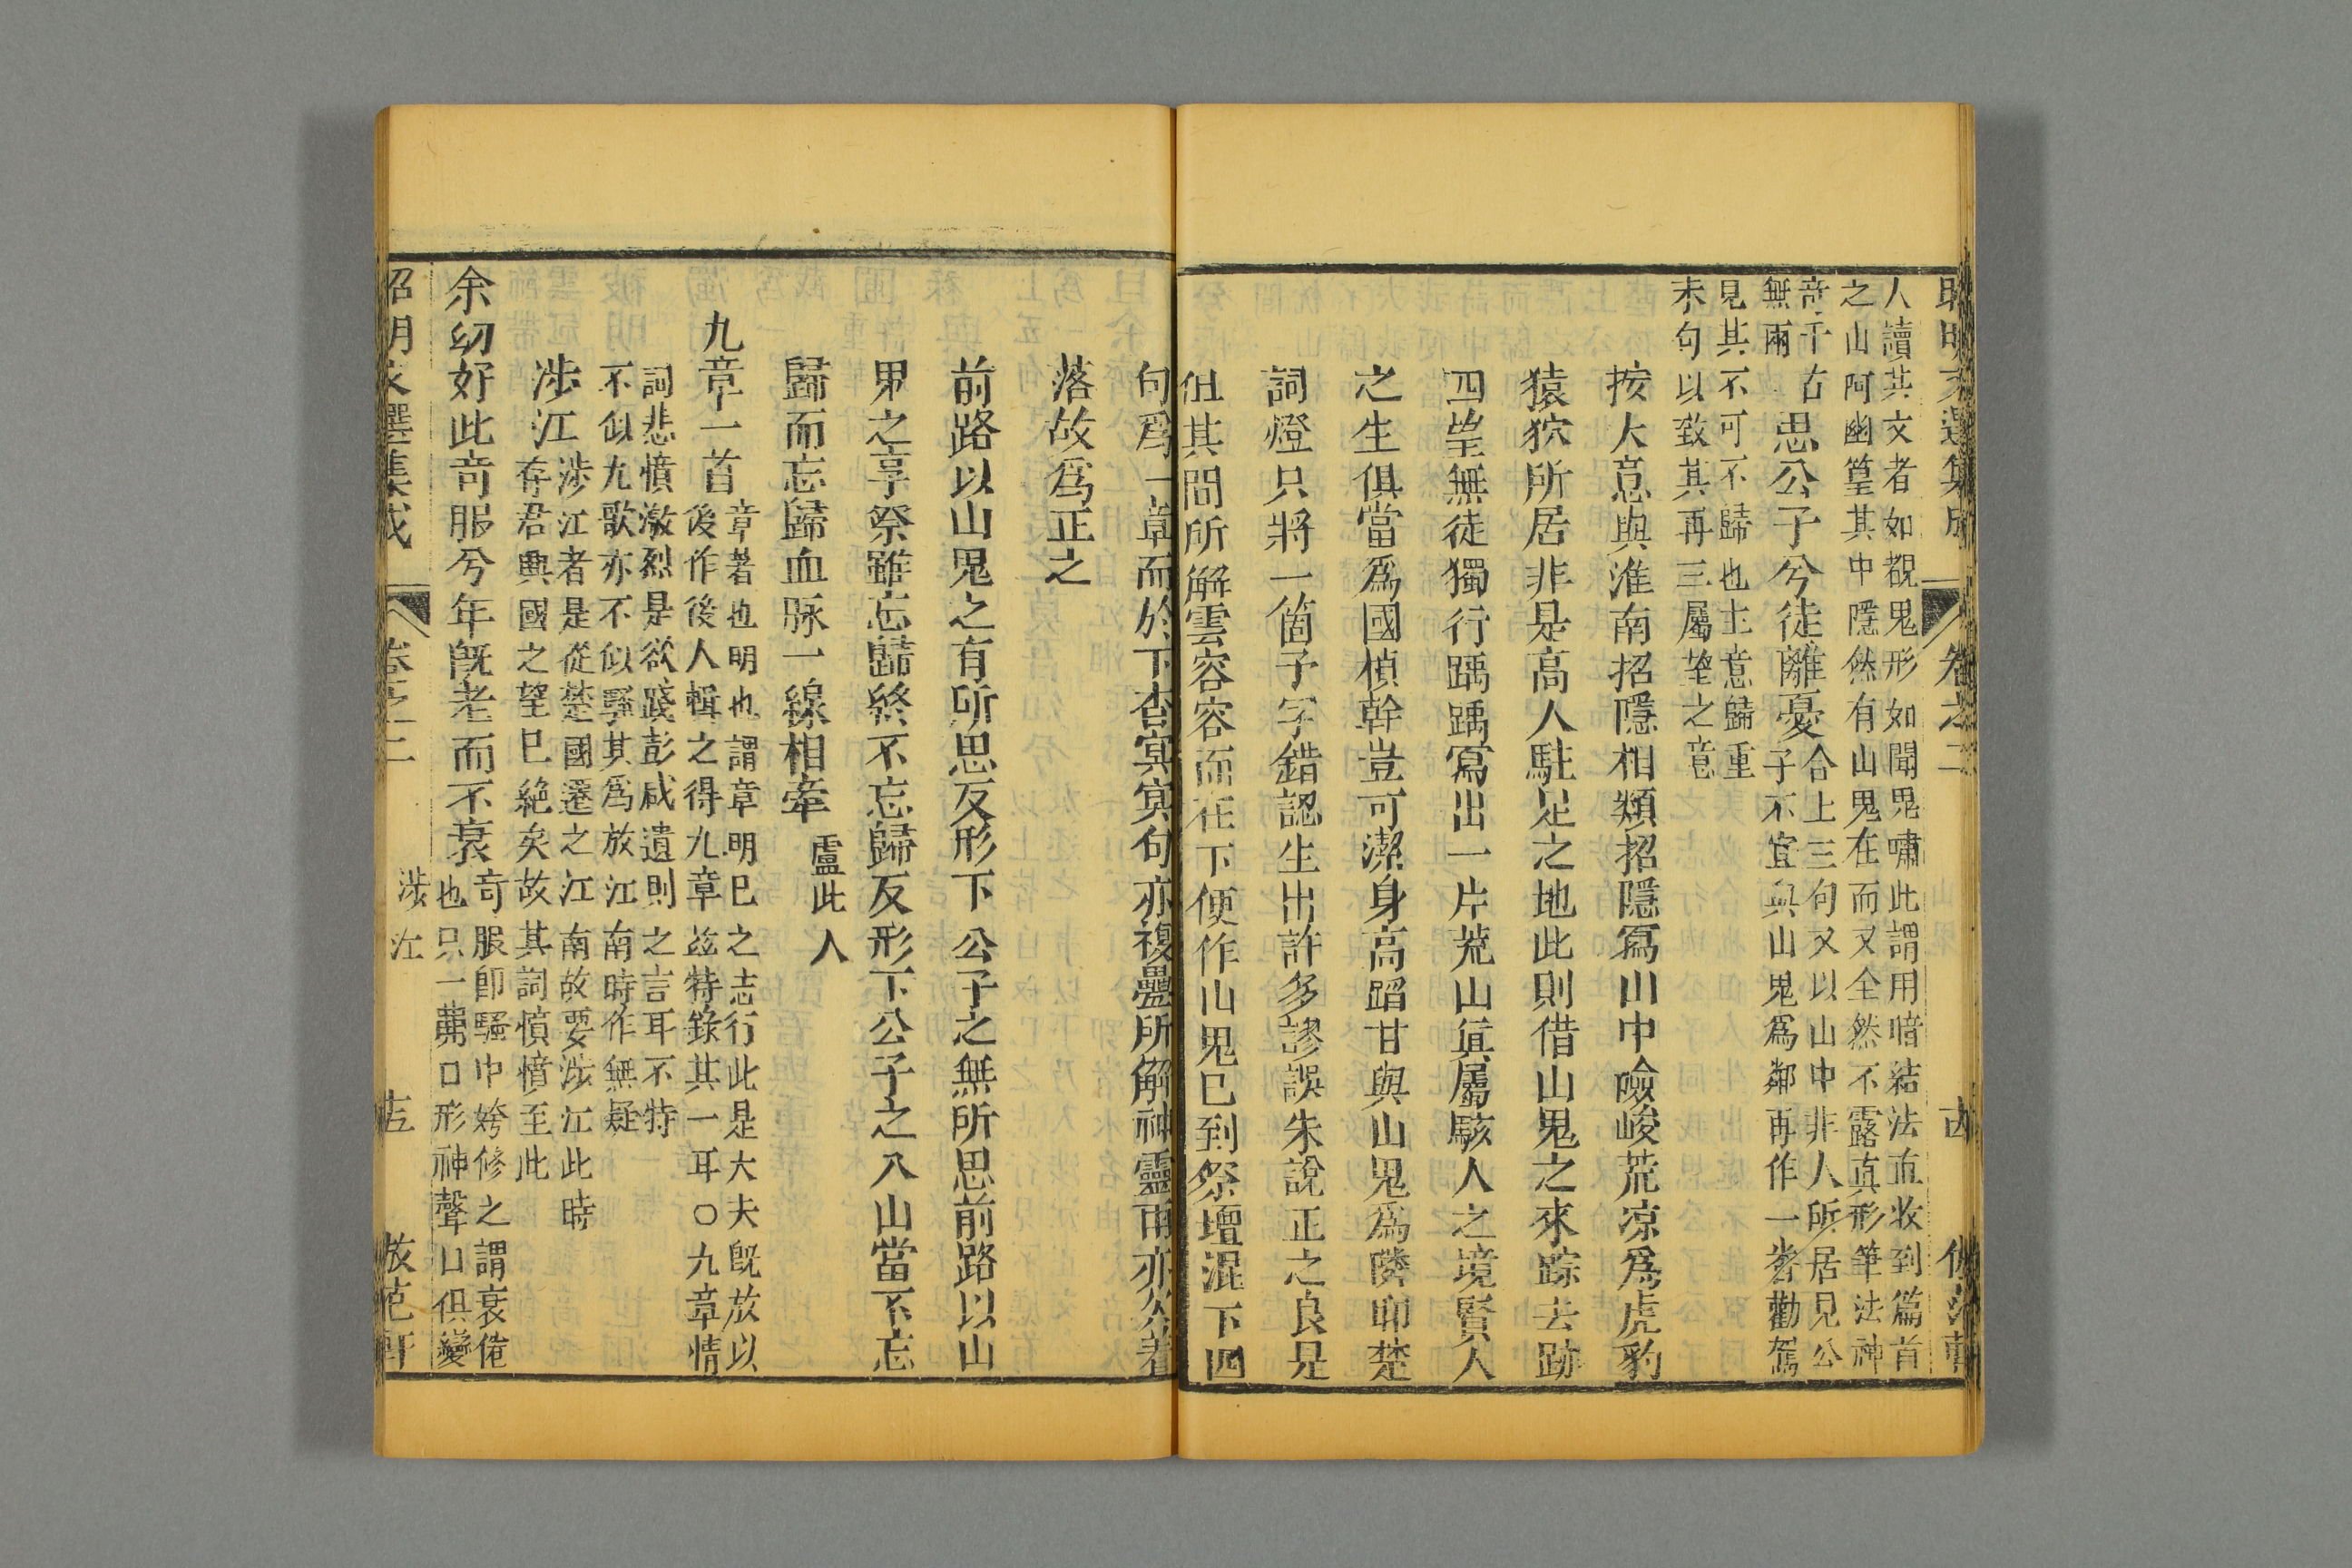 人讀其文者如覩鬼形如聞鬼嘯此謂用暗結法直收到篇首
之山阿幽篁其中隱然有山鬼在而又全然不露真形筆法神
奇千古
無兩
思公子兮徒離憂
合上三句又以山中非人所居見公
子不宜與山鬼爲鄰再作一番勸駕
見其不可不歸也主意歸重
末句以致其再三屬望之意
按大意與淮南招隱相類招隱寫山中嶮峻荒凉爲虎豹
猿狖所居非是高人駐足之地此則借山鬼之來踪去跡
四望無徒獨行踽踽寫出一片荒山眞屬駭人之境賢人
之生俱當爲國楨幹豈可潔身高蹈甘與山鬼爲隣耶楚
詞燈只將一箇子字錯認生出許多謬誤朱說正之良是
但其間所解雲容容而在下便作山鬼已到祭壇混下四
句爲一章而於下杳冥冥句亦複疊所解神靈雨亦
落故爲正之
前路以山鬼之有所思反形下公子之無所思前路以山
鬼之享祭雖忘歸終不忘歸反形下公子之入山當不忘
歸而忘歸血脉一線相牽
盧此人
九章一首
章著也明也謂章明已之志行此是大夫旣放以
後作後人輯之得九章茲特錄其一耳○九章情
詞悲憤激烈是欲踐彭咸遺則之言耳不特
不似九歌亦不似騷其爲放江南時作無疑
涉江
涉江者是從楚國遷之江南故要涉江此時
存君興國之望已絕矣故其詞憤懣至此
余幼好此奇服兮年旣老而不衰
奇服卽騷中姱修之謂衰倦
也只一薦口形神聲口俱變
昭明文選集成
卷之二
涉江